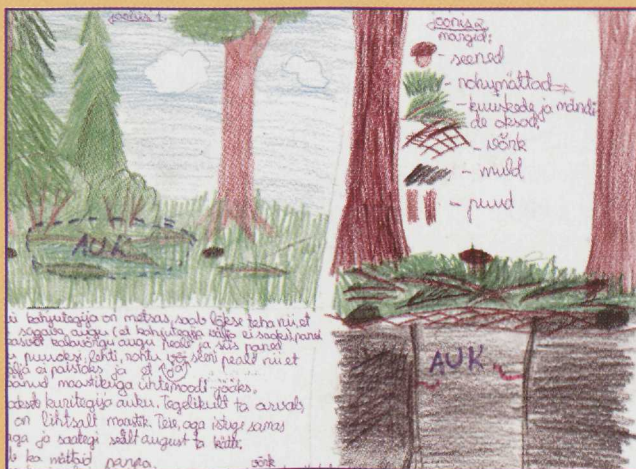 joonis 1.
AUK
joonis 2
märgid:
- seened
- rohumättad
- kuuskede ja mändi-
de oksad
- võrk
- muld
- puud
AUK
kahjutegija on metsas, saab lõksu teha nii, et
augu (et kahjutegija välja ei saaks), pane
kalavõrgu augu peale ja siis paned
puuoksi, lehti, rohtu või seeni peale nii et
välja ei paistaks ja et
maastikuga ühtemoodi jääks,
kuritegija auku. Tegelikult ta arvab,
on lihtsalt maastik. Teie, aga istuge samas
ja saategi sealt august ta kätte.
ka mättaid panna. võrk